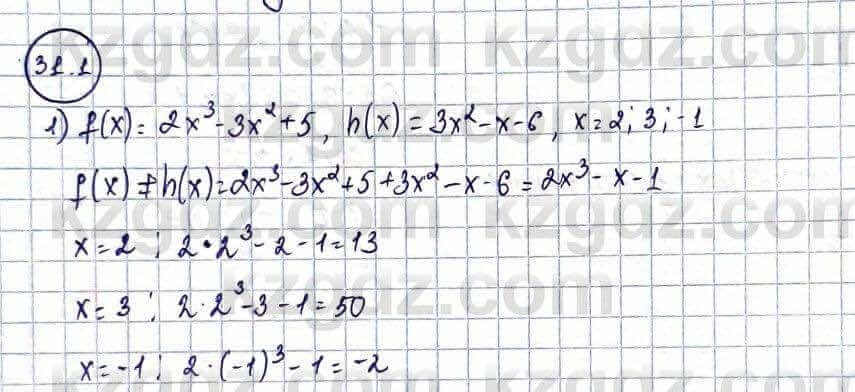 31.1
1) f(x) = 2x³ - 3x² + 5, h(x) = 3x² - x - 6, x = 2; 3; -1
f(x) + h(x) = 2x³ - 3x² + 5 + 3x² - x - 6 = 2x³ - x - 1
x = 2 ; 2 · 2³ - 2 - 1 = 13
x = 3 ; 2 · 2³ - 3 - 1 = 50
x = -1 ; 2 · (-1)³ - 1 = -2
kzgdz.com kzgdz.com
kzgdz.com kzgdz.com
kzgdz.com